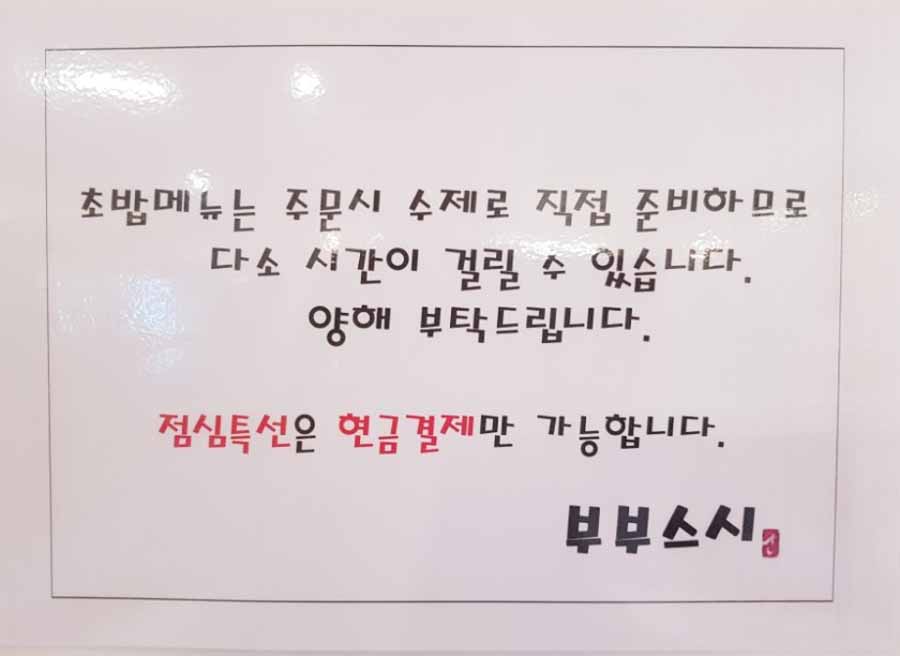 초밥메뉴는 주문시 수제로 직접 준비하므로
다소 시간이 걸릴 수 있습니다.
양해 부탁드립니다.
점심특선은 현금결제만 가능합니다.
부부스시